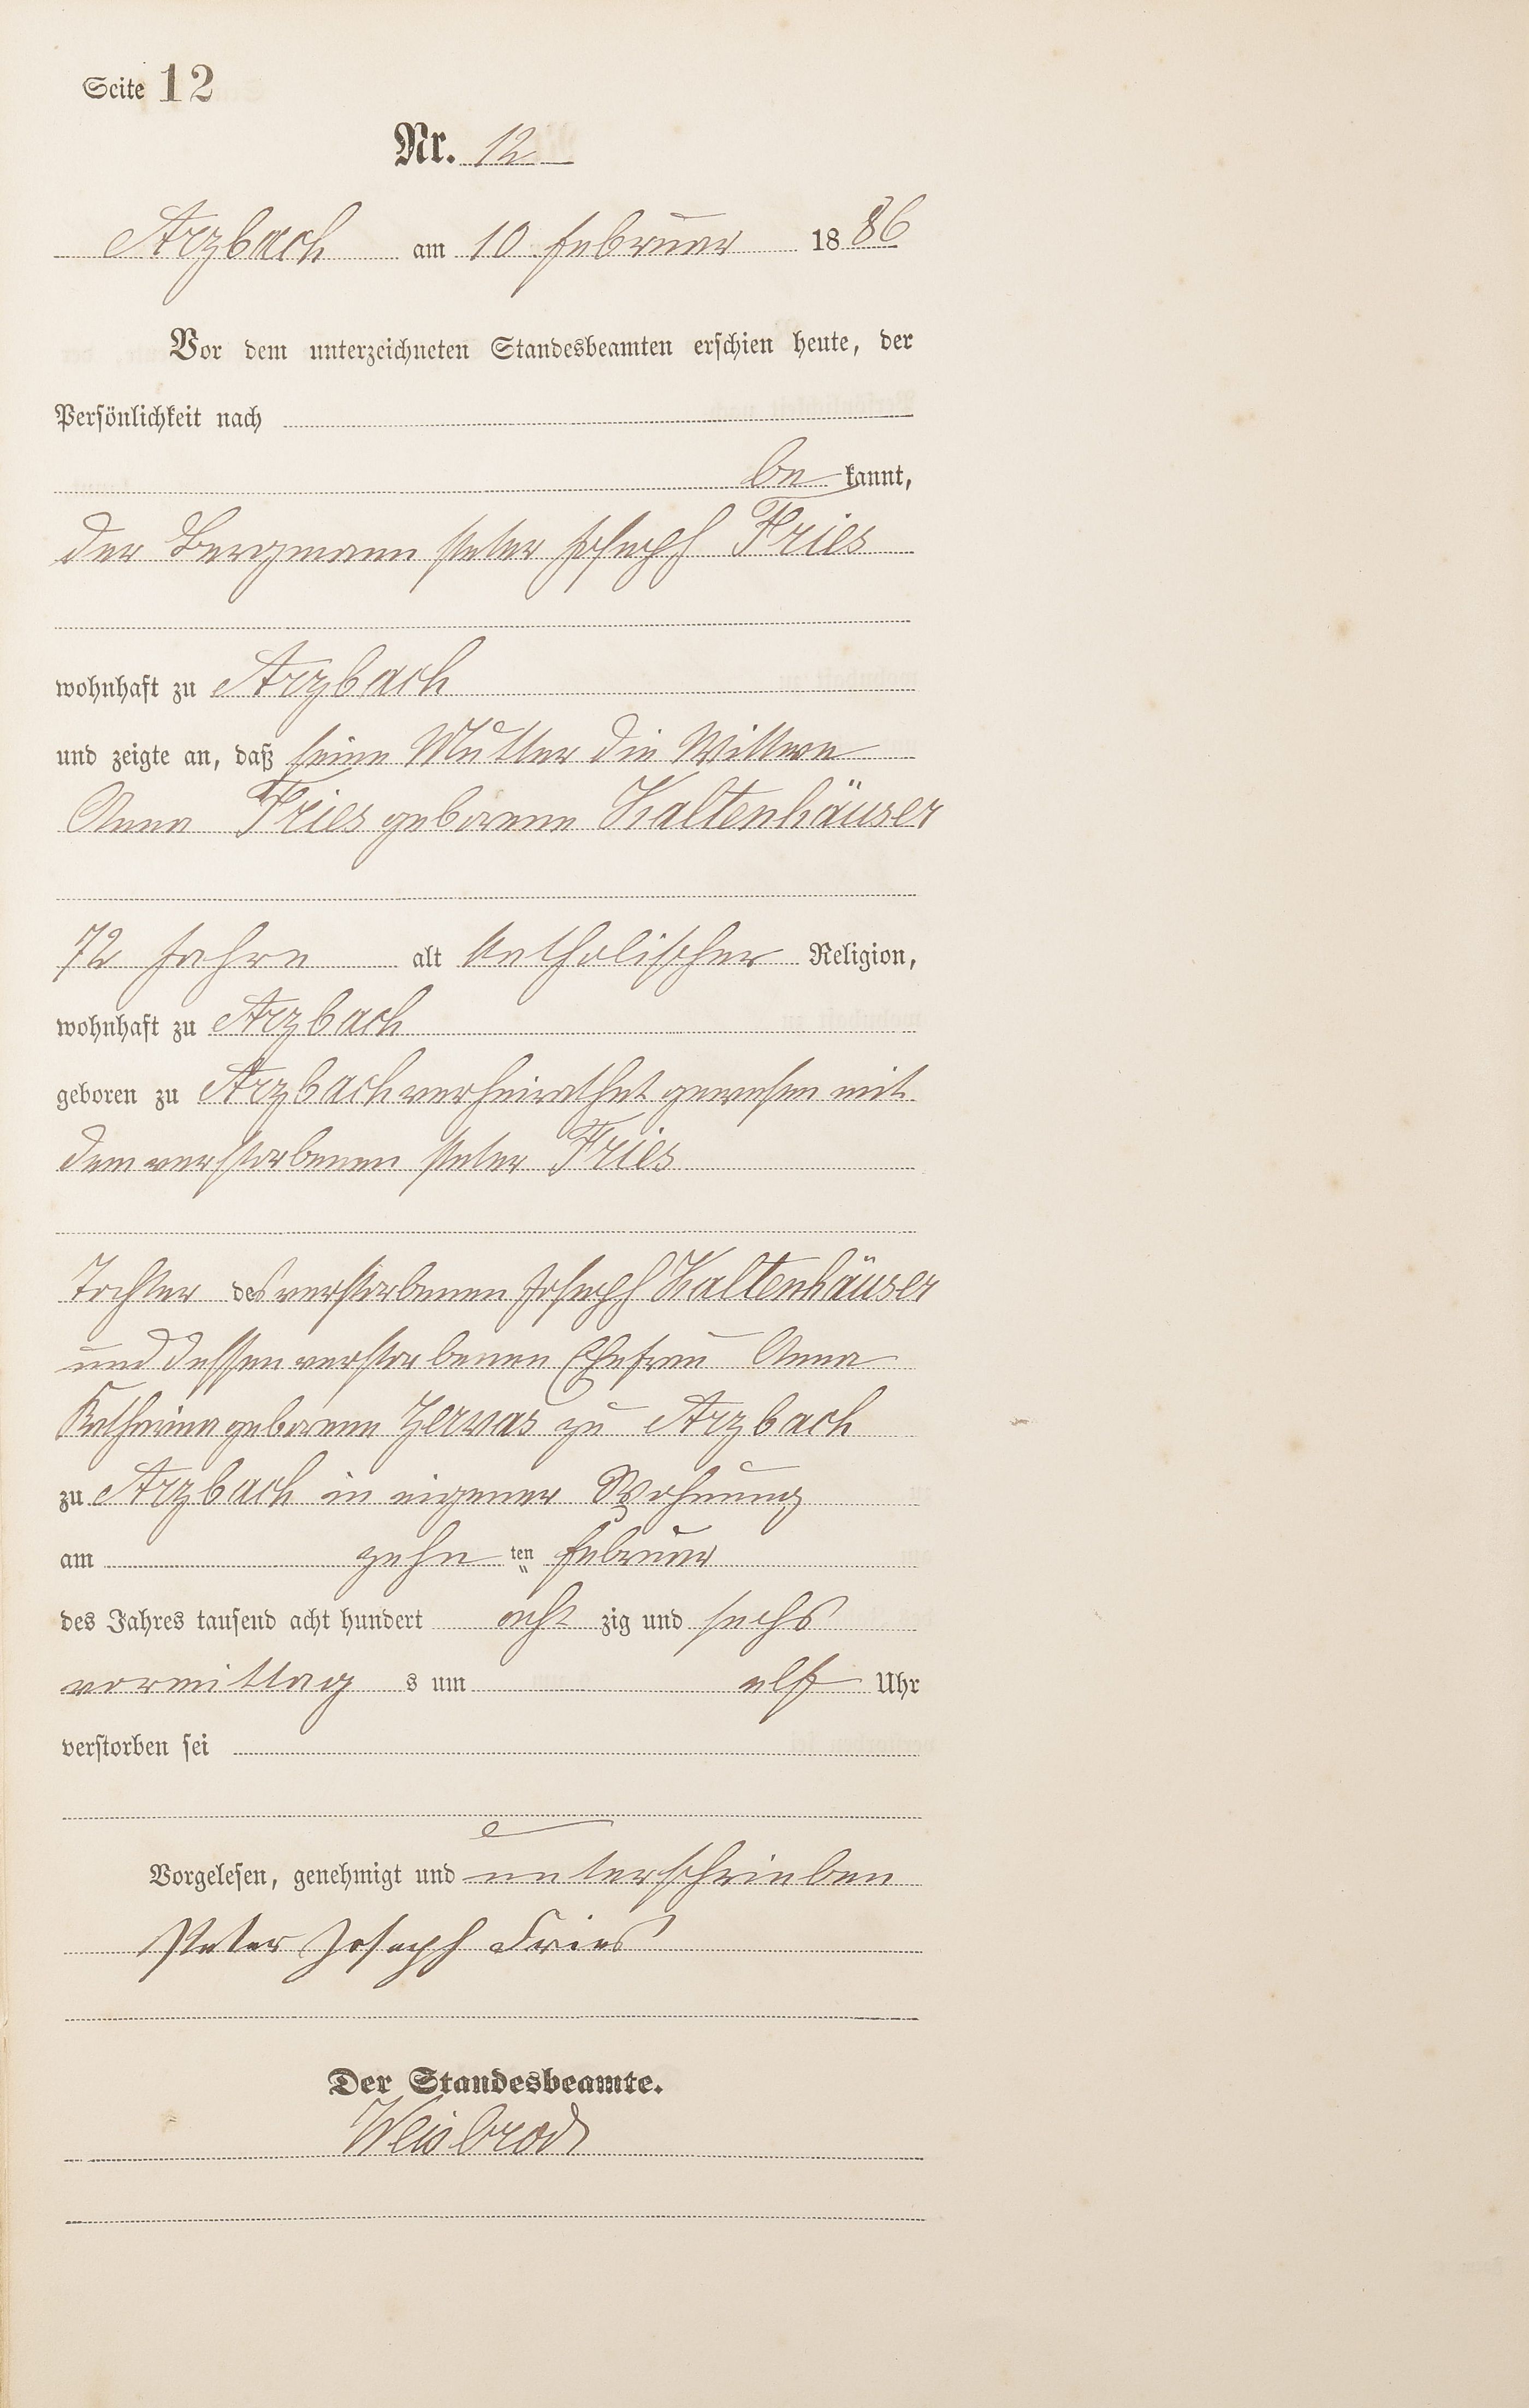 Seite 12
Nr. 12
Arzbach am 10 Februar 1886
Vor dem unterzeichneten Standesbeamten erschien heute, der
Persönlichkeit nach
be kannt,
der Bergmann Peter Joseph Fries
wohnhaft zu Arzbach
und zeigte an, daß seine Mutter die Wittwe
Anna Fries geborene Kaltenhäuser
72 Jahre alt katholischer Religion,
wohnhaft zu Arzbach
geboren zu Arzbach verheirathet gewesen mit
dem verstorbenen Peter Fries
Tochter des verstorbenen Joseph Kaltenhäuser
und dessen verstorbenen Ehefrau Anna
Katharina geborene Zervas zu Arzbach
zu Arzbach in eigener Wohnung
am zehn ten Februar
des Jahres tausend acht hundert acht zig und sechs
vormittag s um elf Uhr
verstorben sei
Vorgelesen, genehmigt und unterschrieben
Peter Joseph Fries
Der Standesbeamte.
Weisbrod